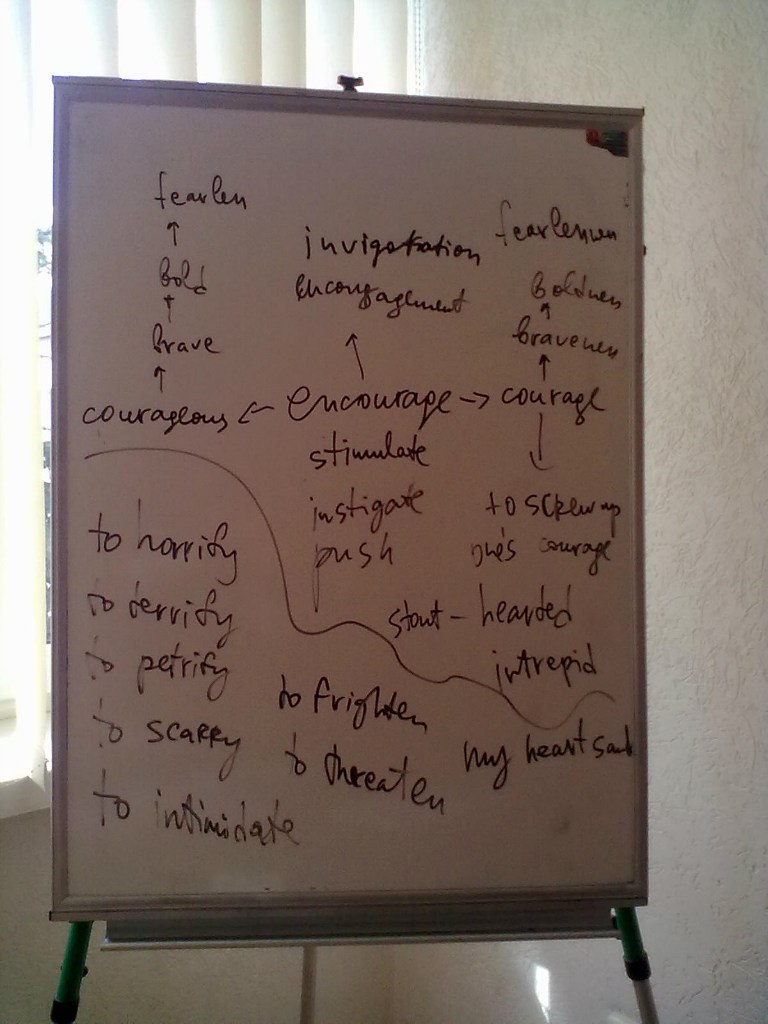 fearless
invigoration
fearlessness
bold
encouragement
boldness
brave
braveness
courageous ← encourage → courage
stimulate
instigate
to screw up
push
one's courage
to horrify
to terrify
stout-hearted
to petrify
intrepid
to frighten
to scarry
my heart sank
to threaten
to intimidate